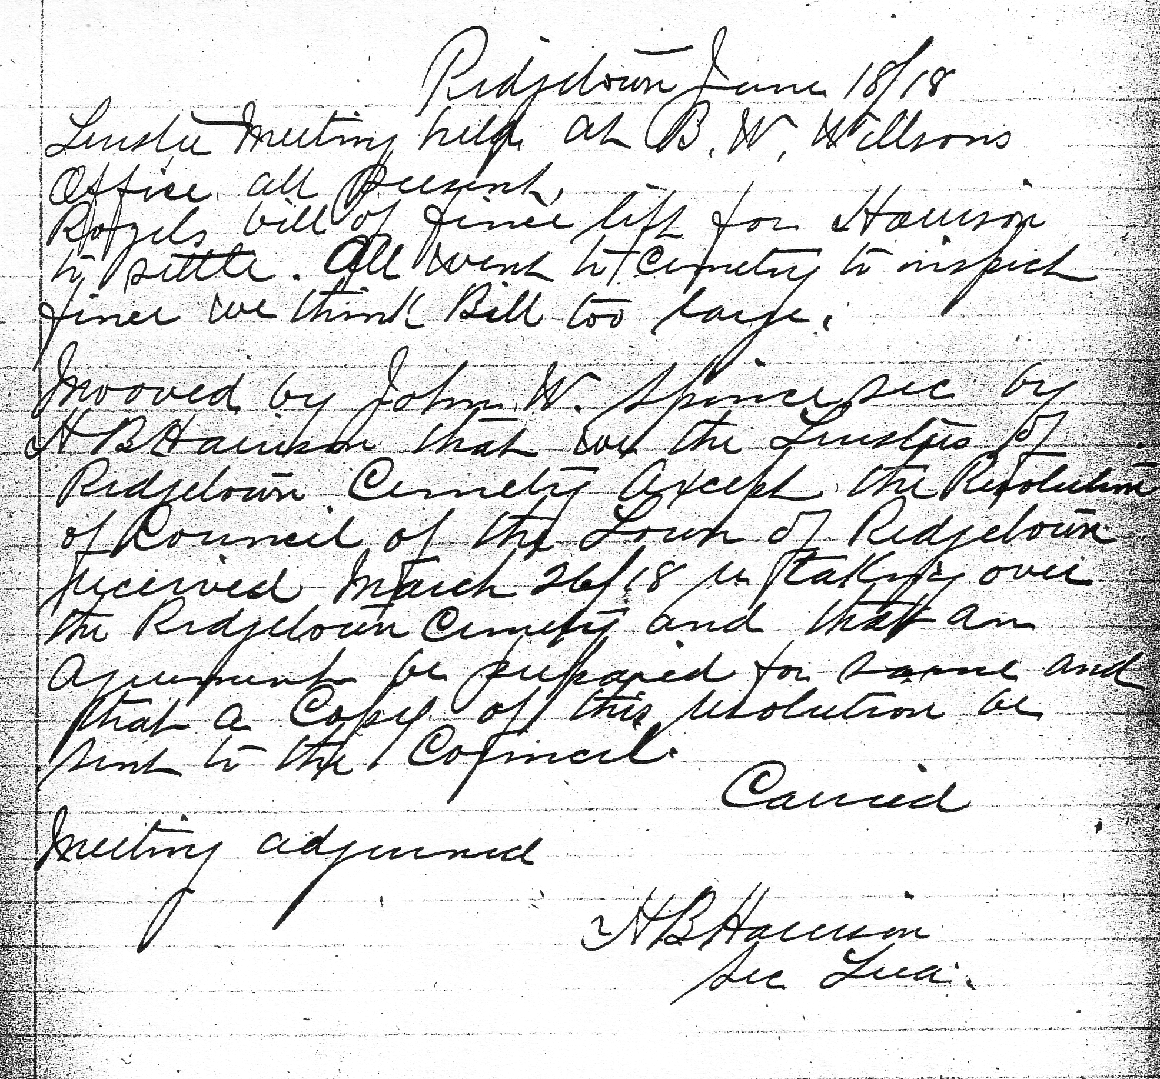 Ridgetown June 18/18
Trustee Meeting held at B. W. Willsons
Office all present.
bill of fence left for Harrison
to settle. All went to Cemetery to inspect
fence we think Bill too large.
Mooved by John W. Spence sec by
H B Harrison that we the Trustees of
Ridgetown Cemetery Axcept the Resolution
of Council of the Town of Ridgetown
received March 26/18 re taking over
the Ridgetown Cemetery and that an
agreement be prepared for same and
that a Copy of this resolution be
sent to the Council.
Carried
Meeting adjourned
H B Harrison
Sec Trea.